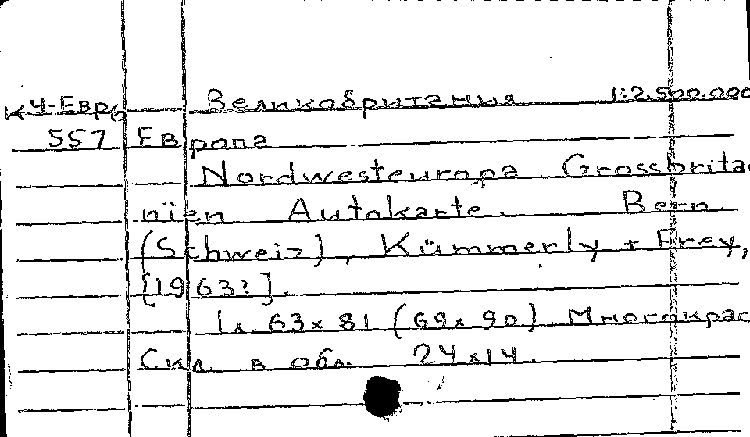 К4-Евр6 Великобритания 1:2.500.000
557 Европа
Nordwesteuropa Grossbrita-
nien Autokarte. Bern
(Schweiz), Kümmerly + Frey,
[1963?].
1л. 63x81 (69x90) Многокрас
Скл. в обл. 24x14.